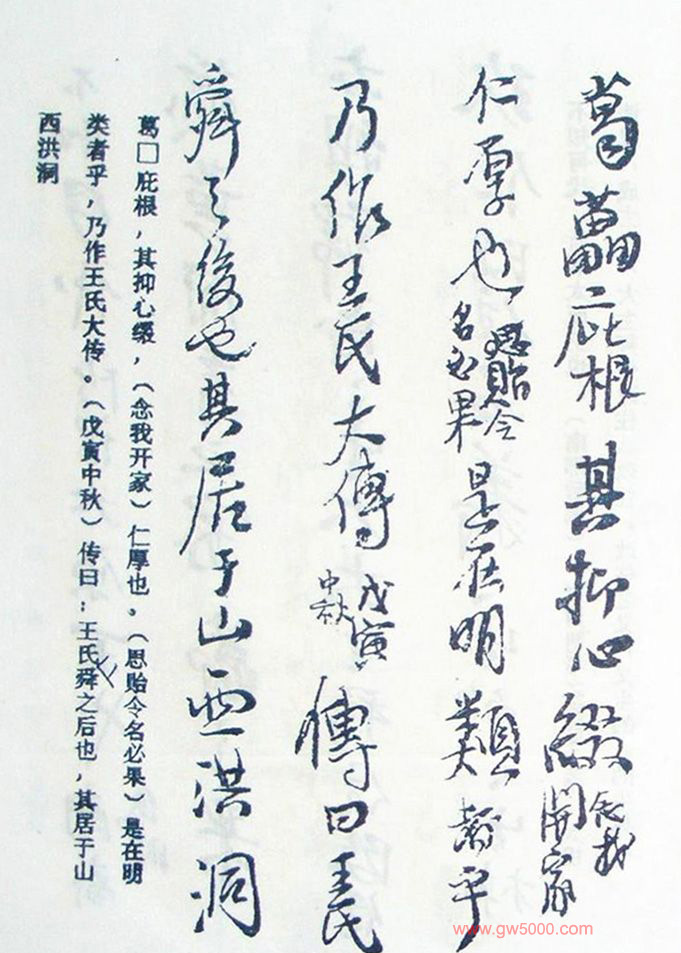 葛藟庇根其抑心缀念我開家
仁厚也思貽令名必果是在明類者乎
乃作王氏大傳戊寅中秋傳曰王氏
舜之後也其居于山西洪洞
葛□庇根，其抑心缀，（念我开家）仁厚也。（思贻令名必果）是在明
类者乎，乃作王氏大传。（戊寅中秋）传曰：王氏舜之后也，其居于山
西洪洞
www.gw5000.com